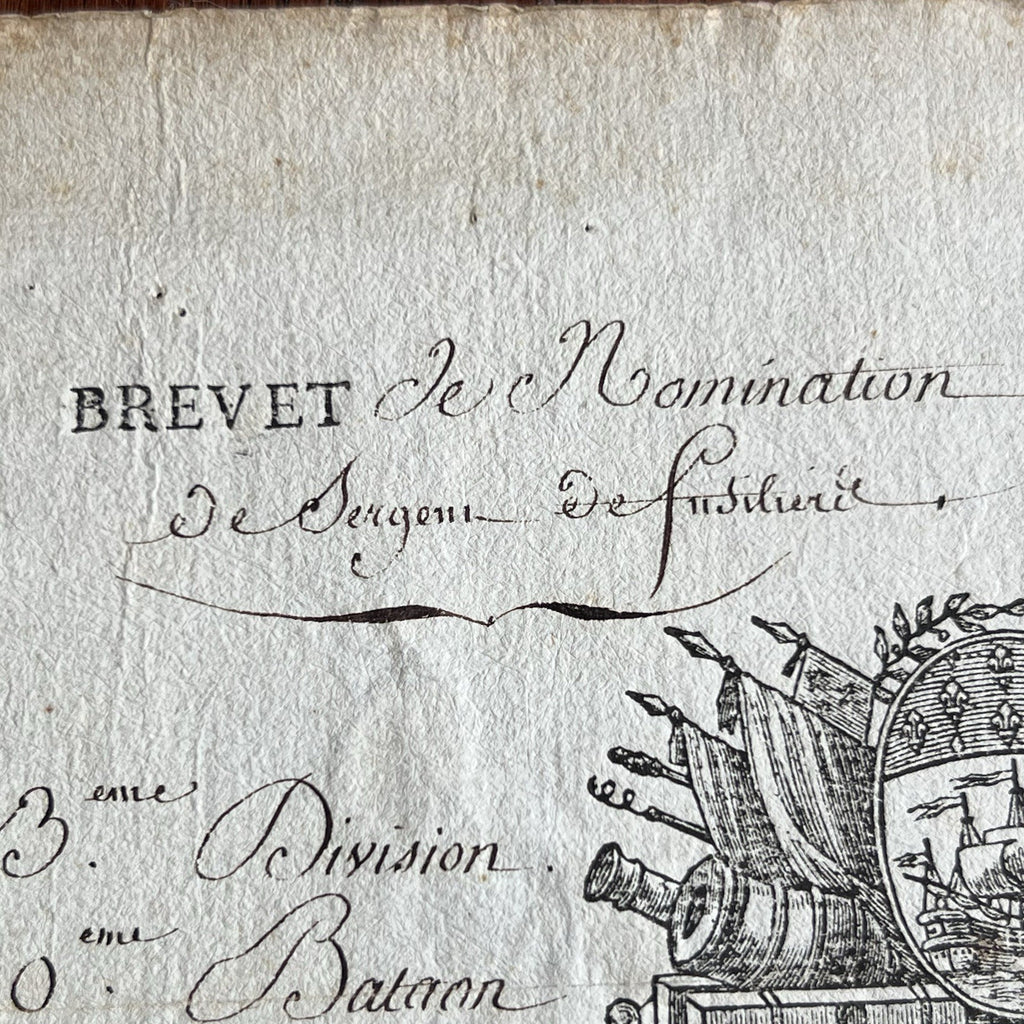 BREVET de Nomination
de Sergent de fusilierd.
3.eme Division.
0.eme Bataon